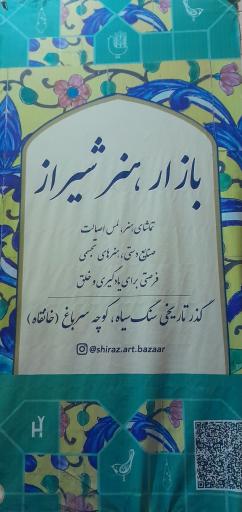 بازار هنر شیراز
تماشای هنر، لمس اصالت
صنایع دستی، هنرهای تجسمی
فرصتی برای یادگیری و خلق
گذر تاریخی سنگ سیاه، کوچه سرباغ (خانقاه)
@shiraz.art.bazaar